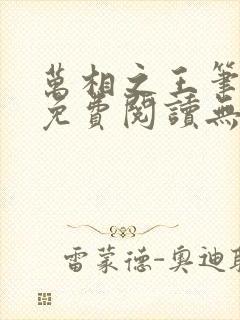 萬相之王筆
免費閱讀無
雷蒙德-奧迪